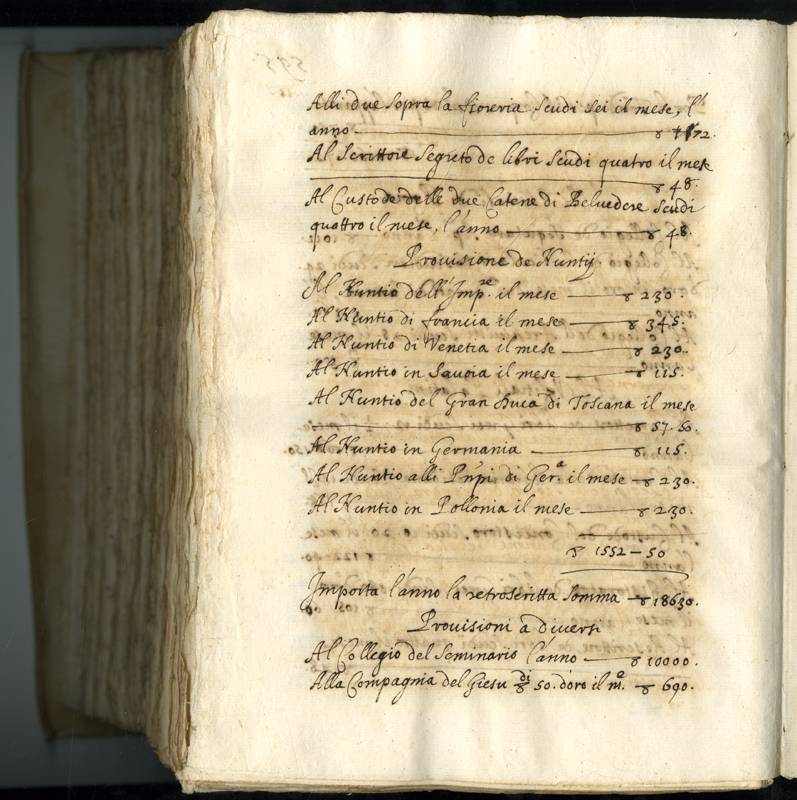 Alli due sopra la fioreria scudi sei il mese, l'
anno — 72.
Al Scrittore segreto de libri scudi quatro il mese
— 48.
Al Custode delle due Catene di Belvedere scudi
quattro il mese, l'anno — 48.
Provisione de Nuntij
Al Nuntio dell'Imp.re il mese — 230.
Al Nuntio di francia il mese — 345.
Al Nuntio di Venetia il mese — 230.
Al Nuntio in Savoia il mese — 115.
Al Nuntio del Gran Duca di Toscana il mese
— 57.50.
Al Nuntio in Germania — 115.
Al Nuntio alli Pñpi di Ger.a il mese — 230.
Al Nuntio in Pollonia il mese — 230.
1552 — 50
Importa l'anno la retroscritta somma — 18630.
Provisioni a diversi
Al Collegio del Seminario l'anno — 10000.
Alla Compagnia del Giesu di 50. d'oro il m.e — 690.